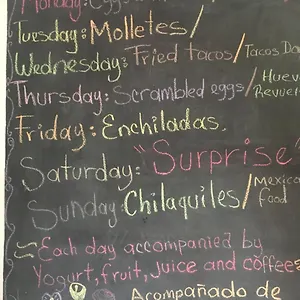 Monday: Eggs
Tuesday: Molletes/
Wednesday: Fried tacos/Tacos Do
Thursday: Scrambled eggs/Huev
Revuel
Friday: Enchiladas.
Saturday: "Surprise"
Sunday: Chilaquiles/Mexica
food
Each day accompanied by
Yogurt, fruit, juice and coffees
Acompañado de